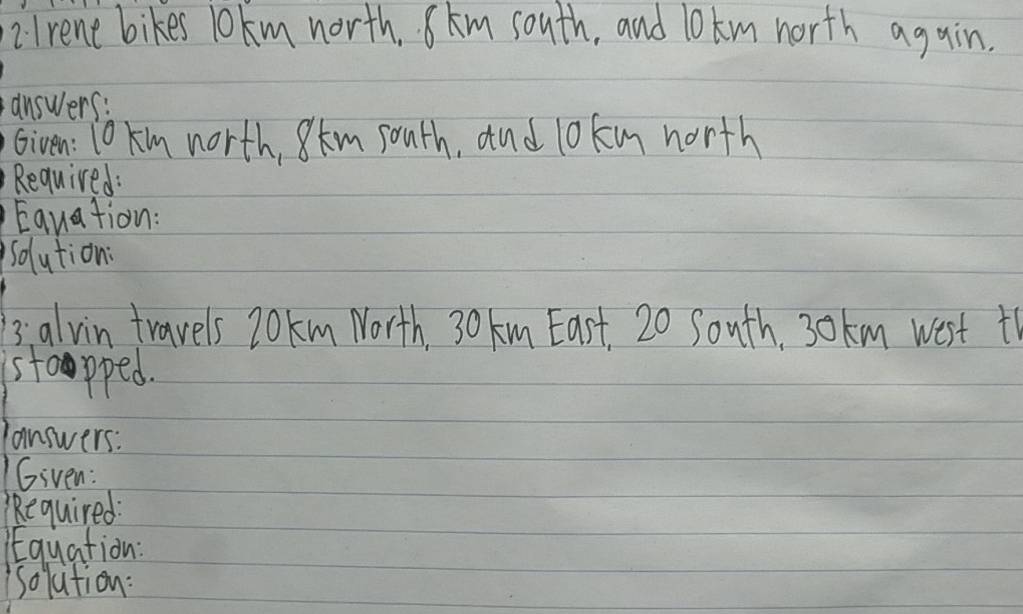 2. Irene bikes 10km north, 8km south, and 10km north again.
answers:
Given: 10 km north, 8km south, and 10km north
Required:
Equation:
Solution:
3. alvin travels 20km North, 30km East, 20 South, 30km west th
stopped.
answers:
Given:
Required:
Equation:
Solution: